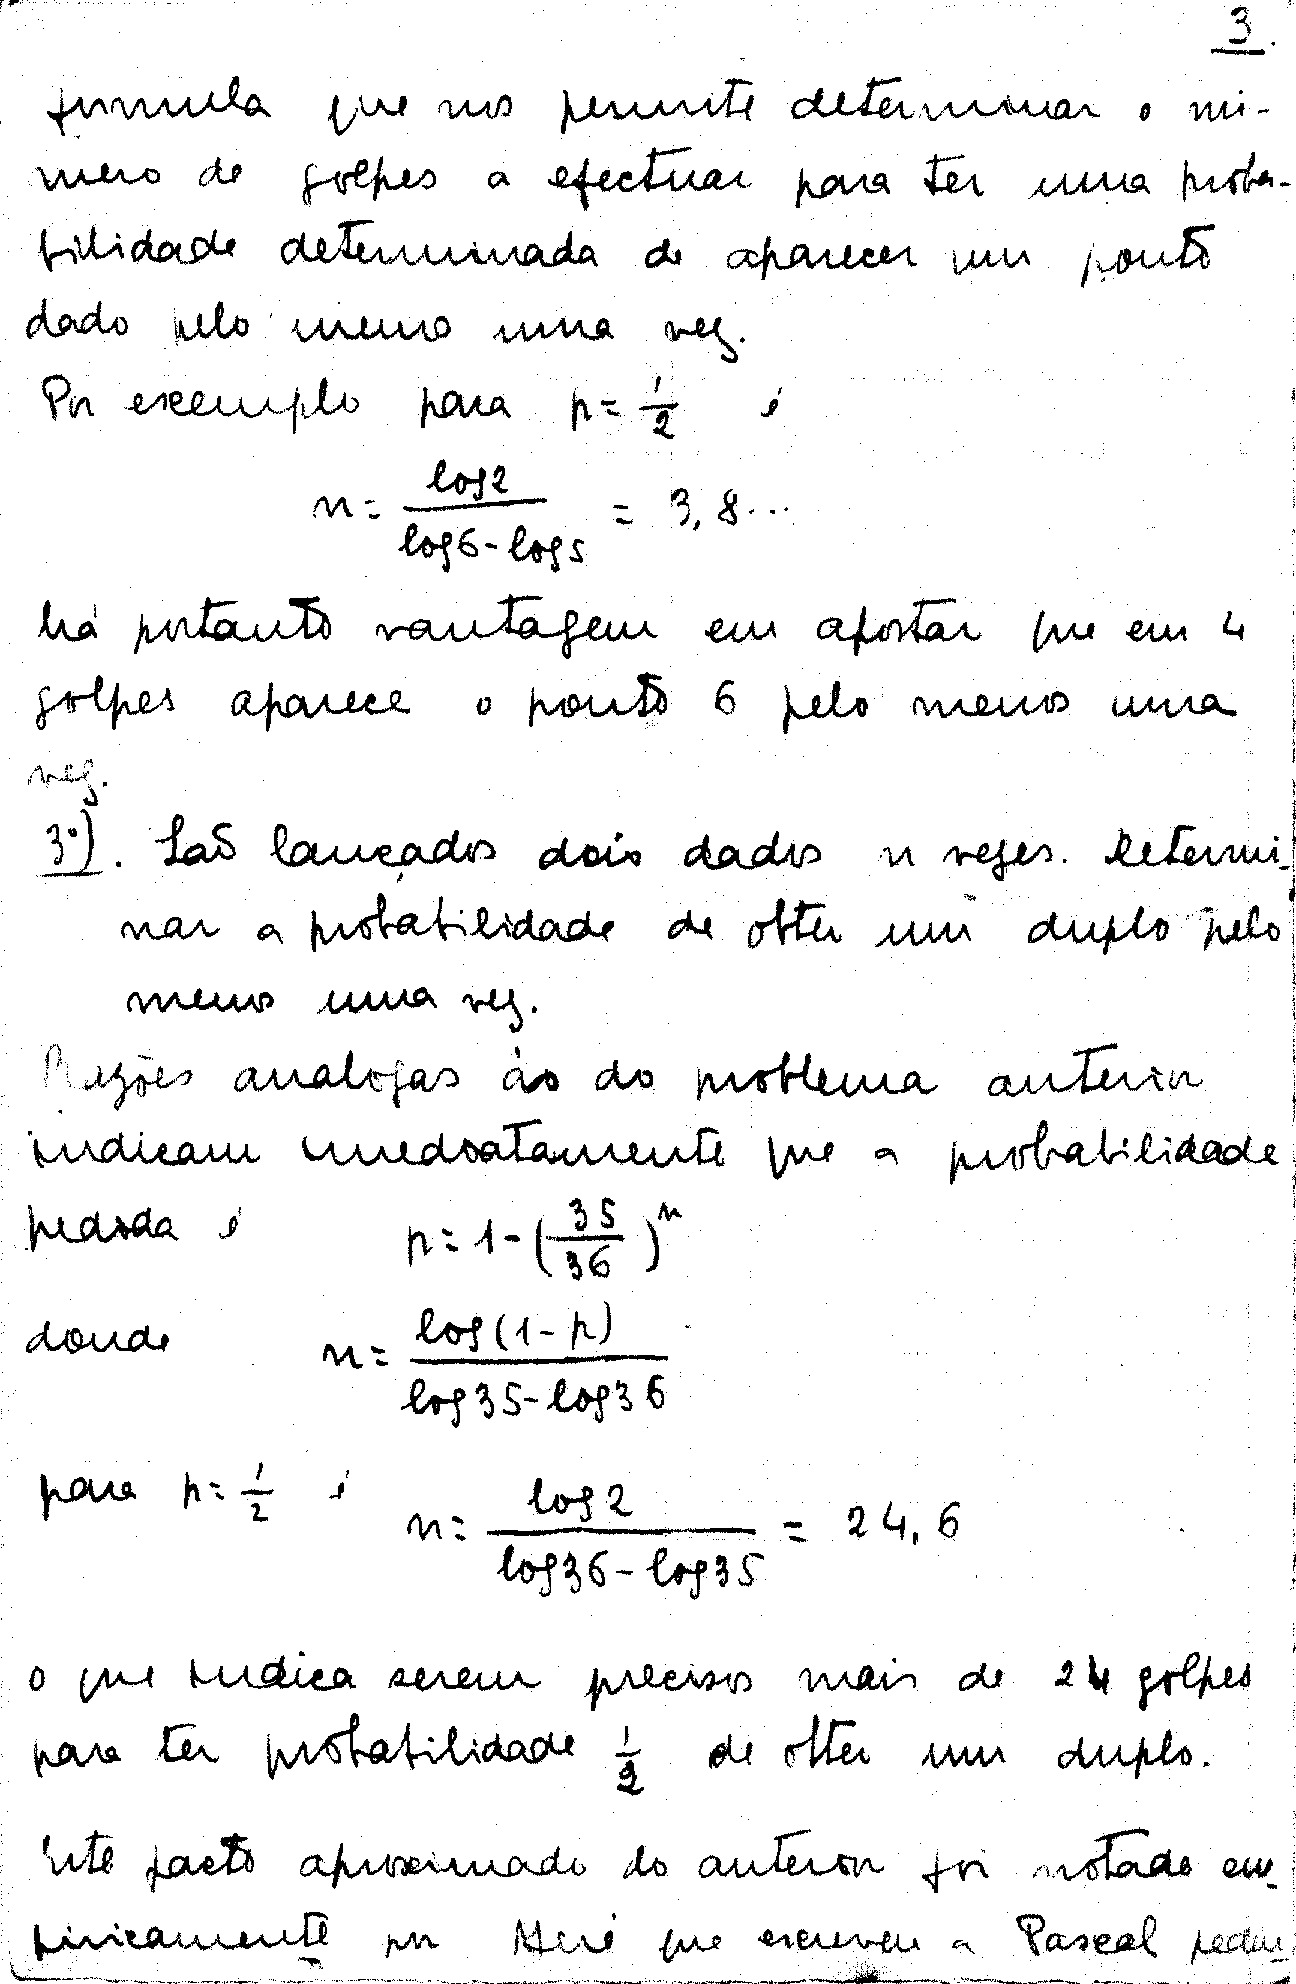 3.
formula que nos permite determinar o nú-
mero de golpes a efectuar para ter uma proba-
bilidade determinada de aparecer um ponto
dado pelo meno uma vez.
Por exemplo para p = 1/2 é
n = log 2 / (log 6 - log 5) = 3,8...
há portanto vantagem em apostar que em 4
golpes aparece o ponto 6 pelo menos uma
vez.
3º). São lançados dois dados n vezes. Determi-
nar a probabilidade de obter um duplo pelo
menos uma vez.
Razões analogas ás do problema anterior
indicam imediatamente que a probabilidade
pedida é p = 1 - (35/36)^n
donde n = log (1 - p) / (log 35 - log 36)
para p = 1/2 é n = log 2 / (log 36 - log 35) = 24,6
o que indica serem precisos mais de 24 golpes
para ter probabilidade 1/2 de obter um duplo.
Este facto aproximado do anterior foi notado em-
piricamente por Meré que escreveu a Pascal pedin-